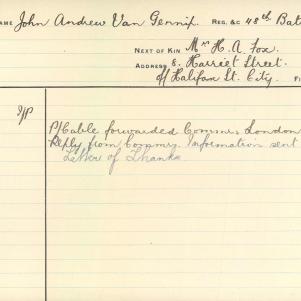 NAME John Andrew Van Gennip. REG. &C 48th Bat
NEXT OF KIN Mrs H. A. Fox.
ADDRESS 8. Harriet Street.
off Halifax St. City.
P/Cable forwarded Commr. London
Reply from Commr. Information sent
Letter of Thanks